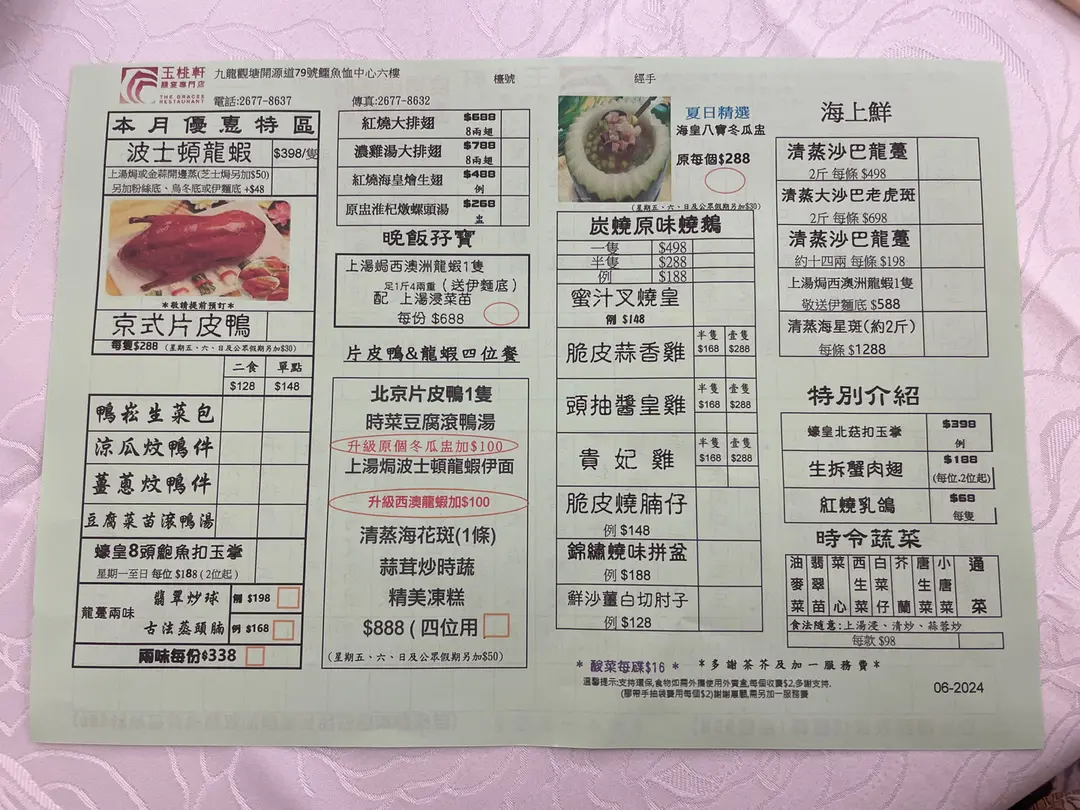 玉桃軒
THE GRACES
RESTAURANT
九龍觀塘開源道79號鱷魚恤中心六樓
電話:2677-8637
傳真:2677-8632
檯號
經手
本月優惠特區
波士頓龍蝦 $398/隻
上湯焗或金蒜開邊蒸(芝士焗另加$50)
另加粉絲底、烏冬底或伊麵底 +$48
*敬請提前預訂*
京式片皮鴨
每隻$288 (星期五、六、日及公眾假期另加$30)
二食 單點
$128 $148
鴨崧生菜包
涼瓜炆鴨件
薑蔥炆鴨件
豆腐菜苗滾鴨湯
蠔皇8頭鮑魚扣玉掌
星期一至日 每位 $188 (2位起)
龍躉兩味
翡翠炒球 例 $198
古法蒸頭腩 例 $168
兩味每份$338
紅燒大排翅 $688
8兩翅
濃雞湯大排翅 $788
8兩翅
紅燒海皇燴生翅 $488
例
原盅淮杞燉螺頭湯 $268
盅
晚飯孖寶
上湯焗西澳洲龍蝦1隻
足1斤4兩重(送伊麵底)
配 上湯浸菜苗
每份 $688
片皮鴨&龍蝦四位餐
北京片皮鴨1隻
時菜豆腐滾鴨湯
升級原個冬瓜盅加$100
上湯焗波士頓龍蝦伊面
升級西澳龍蝦加$100
清蒸海花斑(1條)
蒜茸炒時蔬
精美凍糕
$888 (四位用
(星期五、六、日及公眾假期另加$50)
夏日精選
海皇八寶冬瓜盅
原每個$288
(星期五、六、日及公眾假期另加$30)
炭燒原味燒鵝
一隻 $498
半隻 $288
例 $188
蜜汁叉燒皇
例 $148
脆皮蒜香雞 半隻 $168 壹隻 $288
頭抽醬皇雞 半隻 $168 壹隻 $288
貴妃雞 半隻 $168 壹隻 $288
脆皮燒腩仔
例 $148
錦繡燒味拼盆
例 $188
鮮沙薑白切肘子
例 $128
海上鮮
清蒸沙巴龍躉
2斤 每條 $498
清蒸大沙巴老虎斑
2斤 每條 $698
清蒸沙巴龍躉
約十四兩 每條 $198
上湯焗西澳洲龍蝦1隻
敬送伊麵底 $588
清蒸海星斑(約2斤)
每條 $1288
特別介紹
蠔皇北菇扣玉掌 $398
例
生拆蟹肉翅 $188
(每位.2位起)
紅燒乳鴿 $68
每隻
時令蔬菜
油麥菜 翡翠苗 菜心 西生菜 白菜仔 芥蘭 唐生菜 小唐菜 通菜
食法隨意:上湯浸、清炒、蒜蓉炒
每款 $98
* 酸菜每碟$16 * *多謝茶芥及加一服務費*
溫馨提示:支持環保,食物如需外攜使用外賣盒,每個收費$2,多謝支持.
(膠帶手抽袋費用每個$2)謝謝惠顧,需另加一服務費
06-2024